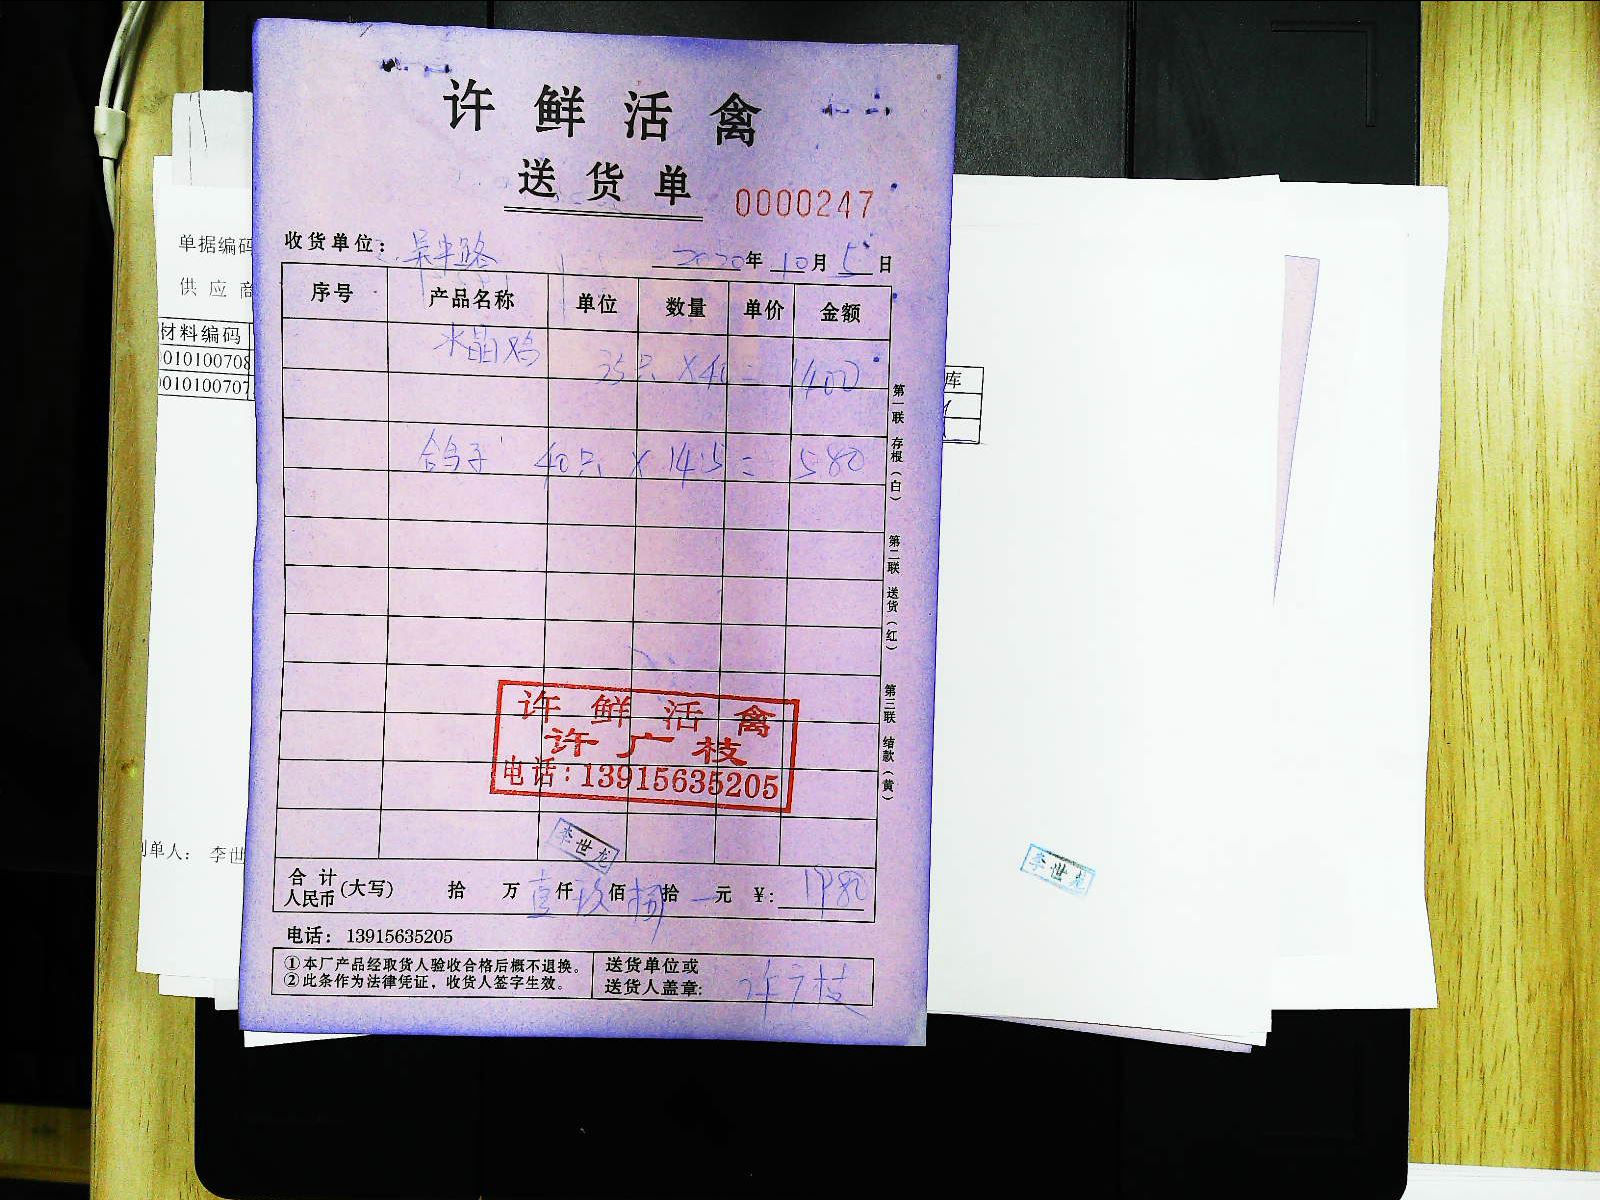 许鲜活禽
送货单
0000247
收货单位: 吴中路
2020年 10月 5日
序号 产品名称 单位 数量 单价 金额
水晶鸡 35只 ×40 = 1400
鸽子 40只 × 14.5 = 580
第一联 存根(白)
第二联 送货(红)
第三联 结款(黄)
许鲜活禽
许广枝
电话:13915635205
李世龙
合计人民币(大写) 拾 万 壹仟 玖佰 捌拾 元 ¥: 1980
电话: 13915635205
①本厂产品经取货人验收合格后概不退换。
②此条作为法律凭证,收货人签字生效。
送货单位或
送货人盖章: 许广枝
单据编码
供应商
材料编码
010100708
010100707
库
制单人: 李世
李世龙